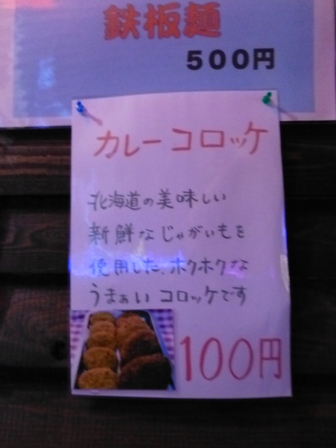 鉄板麺
500円
カレーコロッケ
北海道の美味しい
新鮮なじゃがいもを
使用した、ホクホクな
うまぁいコロッケです
100円